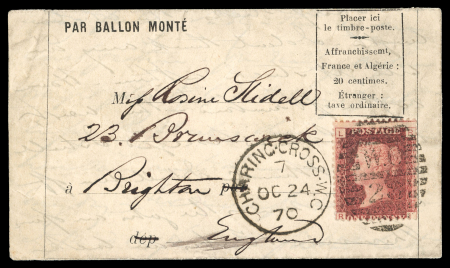 PAR BALLON MONTÉ
Placer ici
le timbre-poste.
Affranchissemt,
France et Algérie :
20 centimes.
Étranger :
taxe ordinaire.
Miss Rosine Slidell
23. Brunswick
à Brighton
dép England
CHARING-CROSS-W.C
7
OC 24
70
POSTAGE
L